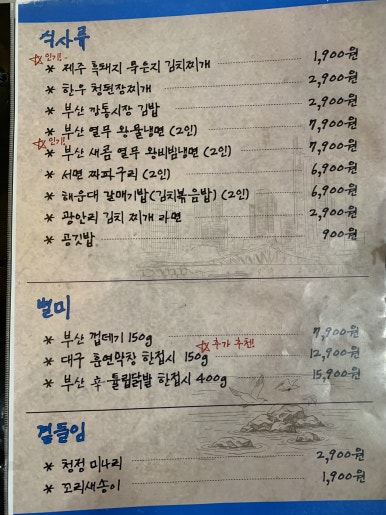 식사류
인기!
* 제주 흑돼지 묵은지 김치찌개 1,900원
* 한우 청된장찌개 2,900원
* 부산 깡통시장 김밥 2,900원
* 부산 열무 왕물냉면 (2인) 7,900원
인기!
* 부산 새콤 열무 왕비빔냉면 (2인) 7,900원
* 서면 짜파구리 (2인) 6,900원
* 해운대 갈매기밥(김치볶음밥) (2인) 6,900원
* 광안리 김치 찌개 라면 2,900원
* 공깃밥 900원
별미
* 부산 껍데기 150g 7,900원
추가 추천!
* 대구 훈연막창 한접시 150g 12,900원
* 부산 후 튤립닭발 한접시 400g 15,900원
곁들임
* 청정 미나리 2,900원
* 꼬리새송이 1,900원